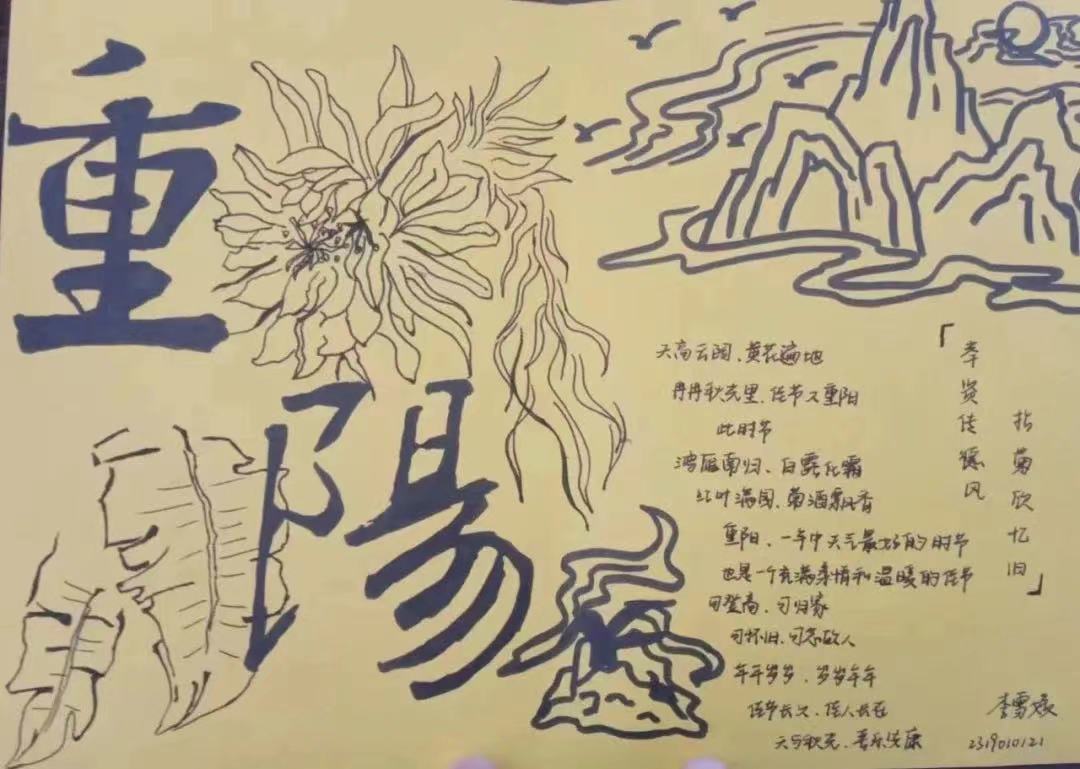 重陽
天高云阔、黄花遍地
冉冉秋光里、佳节又重阳
此时节
鸿雁南归、白露化霜
红叶满园、菊酒飘香
重阳、一年中天气最好的时节
也是一个充满亲情和温暖的佳节
可登高、可归家
可怀旧、可念故人
年年岁岁、岁岁年年
佳节长久、佳人长在
天与秋光、喜乐安康
「奉贤传德风
拈菊欣忆旧」
李雪
2319010121